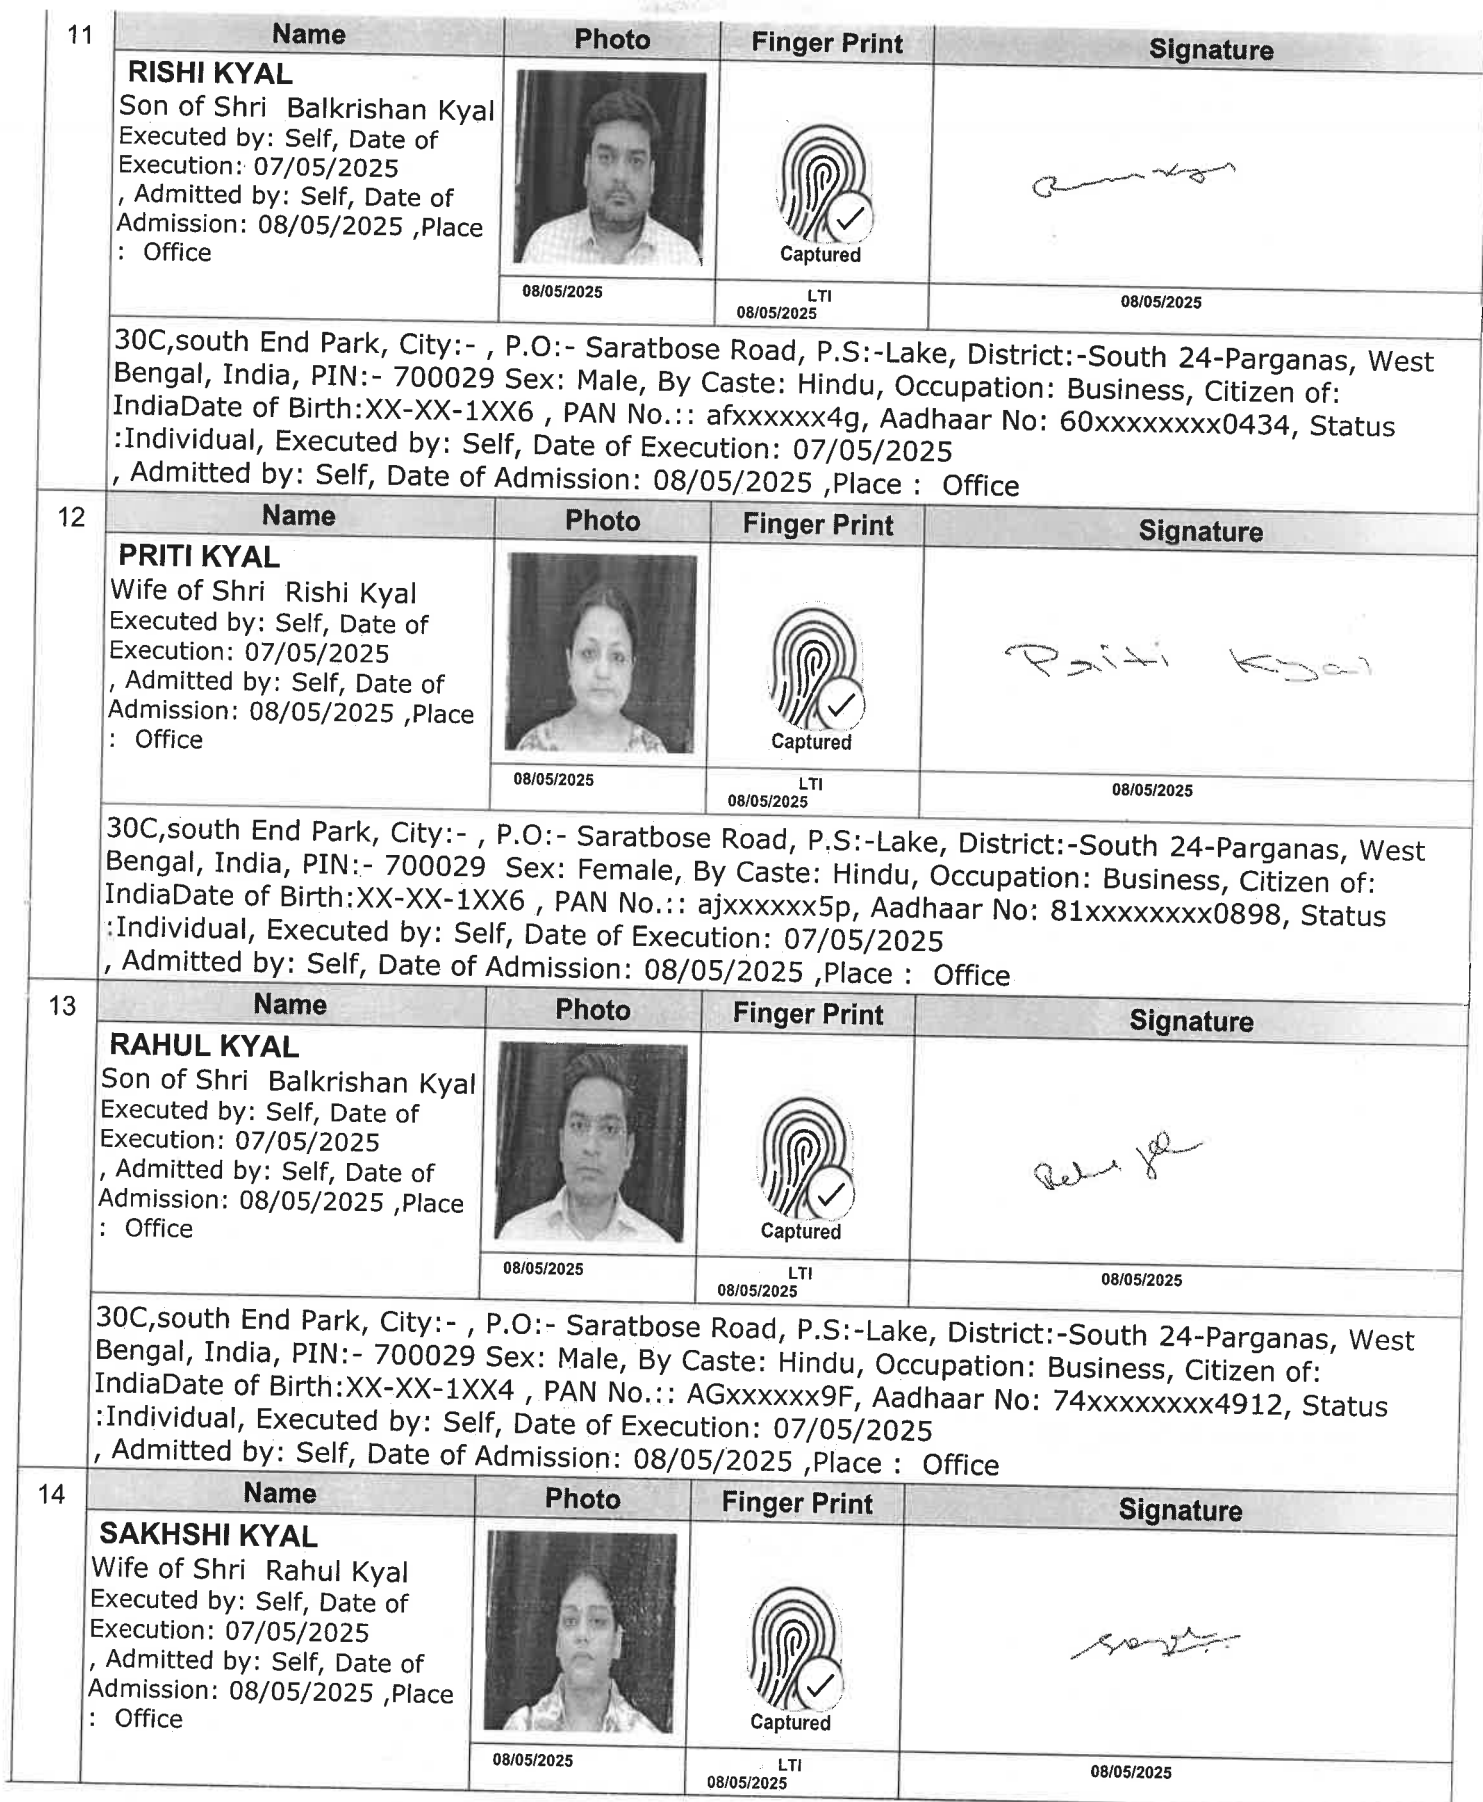 11
Name Photo Finger Print Signature
RISHI KYAL
Son of Shri Balkrishan Kyal
Executed by: Self, Date of
Execution: 07/05/2025
, Admitted by: Self, Date of
Admission: 08/05/2025 ,Place
: Office
Captured
08/05/2025
LTI
08/05/2025
08/05/2025
30C,south End Park, City:- , P.O:- Saratbose Road, P.S:-Lake, District:-South 24-Parganas, West
Bengal, India, PIN:- 700029 Sex: Male, By Caste: Hindu, Occupation: Business, Citizen of:
IndiaDate of Birth:XX-XX-1XX6 , PAN No.:: afxxxxxx4g, Aadhaar No: 60xxxxxxxx0434, Status
:Individual, Executed by: Self, Date of Execution: 07/05/2025
, Admitted by: Self, Date of Admission: 08/05/2025 ,Place : Office
12
Name Photo Finger Print Signature
PRITI KYAL
Wife of Shri Rishi Kyal
Executed by: Self, Date of
Execution: 07/05/2025
, Admitted by: Self, Date of
Admission: 08/05/2025 ,Place
: Office
Captured
Priti Kyal
08/05/2025
LTI
08/05/2025
08/05/2025
30C,south End Park, City:- , P.O:- Saratbose Road, P.S:-Lake, District:-South 24-Parganas, West
Bengal, India, PIN:- 700029 Sex: Female, By Caste: Hindu, Occupation: Business, Citizen of:
IndiaDate of Birth:XX-XX-1XX6 , PAN No.:: ajxxxxxx5p, Aadhaar No: 81xxxxxxxx0898, Status
:Individual, Executed by: Self, Date of Execution: 07/05/2025
, Admitted by: Self, Date of Admission: 08/05/2025 ,Place : Office
13
Name Photo Finger Print Signature
RAHUL KYAL
Son of Shri Balkrishan Kyal
Executed by: Self, Date of
Execution: 07/05/2025
, Admitted by: Self, Date of
Admission: 08/05/2025 ,Place
: Office
Captured
08/05/2025
LTI
08/05/2025
08/05/2025
30C,south End Park, City:- , P.O:- Saratbose Road, P.S:-Lake, District:-South 24-Parganas, West
Bengal, India, PIN:- 700029 Sex: Male, By Caste: Hindu, Occupation: Business, Citizen of:
IndiaDate of Birth:XX-XX-1XX4 , PAN No.:: AGxxxxxx9F, Aadhaar No: 74xxxxxxxx4912, Status
:Individual, Executed by: Self, Date of Execution: 07/05/2025
, Admitted by: Self, Date of Admission: 08/05/2025 ,Place : Office
14
Name Photo Finger Print Signature
SAKHSHI KYAL
Wife of Shri Rahul Kyal
Executed by: Self, Date of
Execution: 07/05/2025
, Admitted by: Self, Date of
Admission: 08/05/2025 ,Place
: Office
Captured
08/05/2025
LTI
08/05/2025
08/05/2025